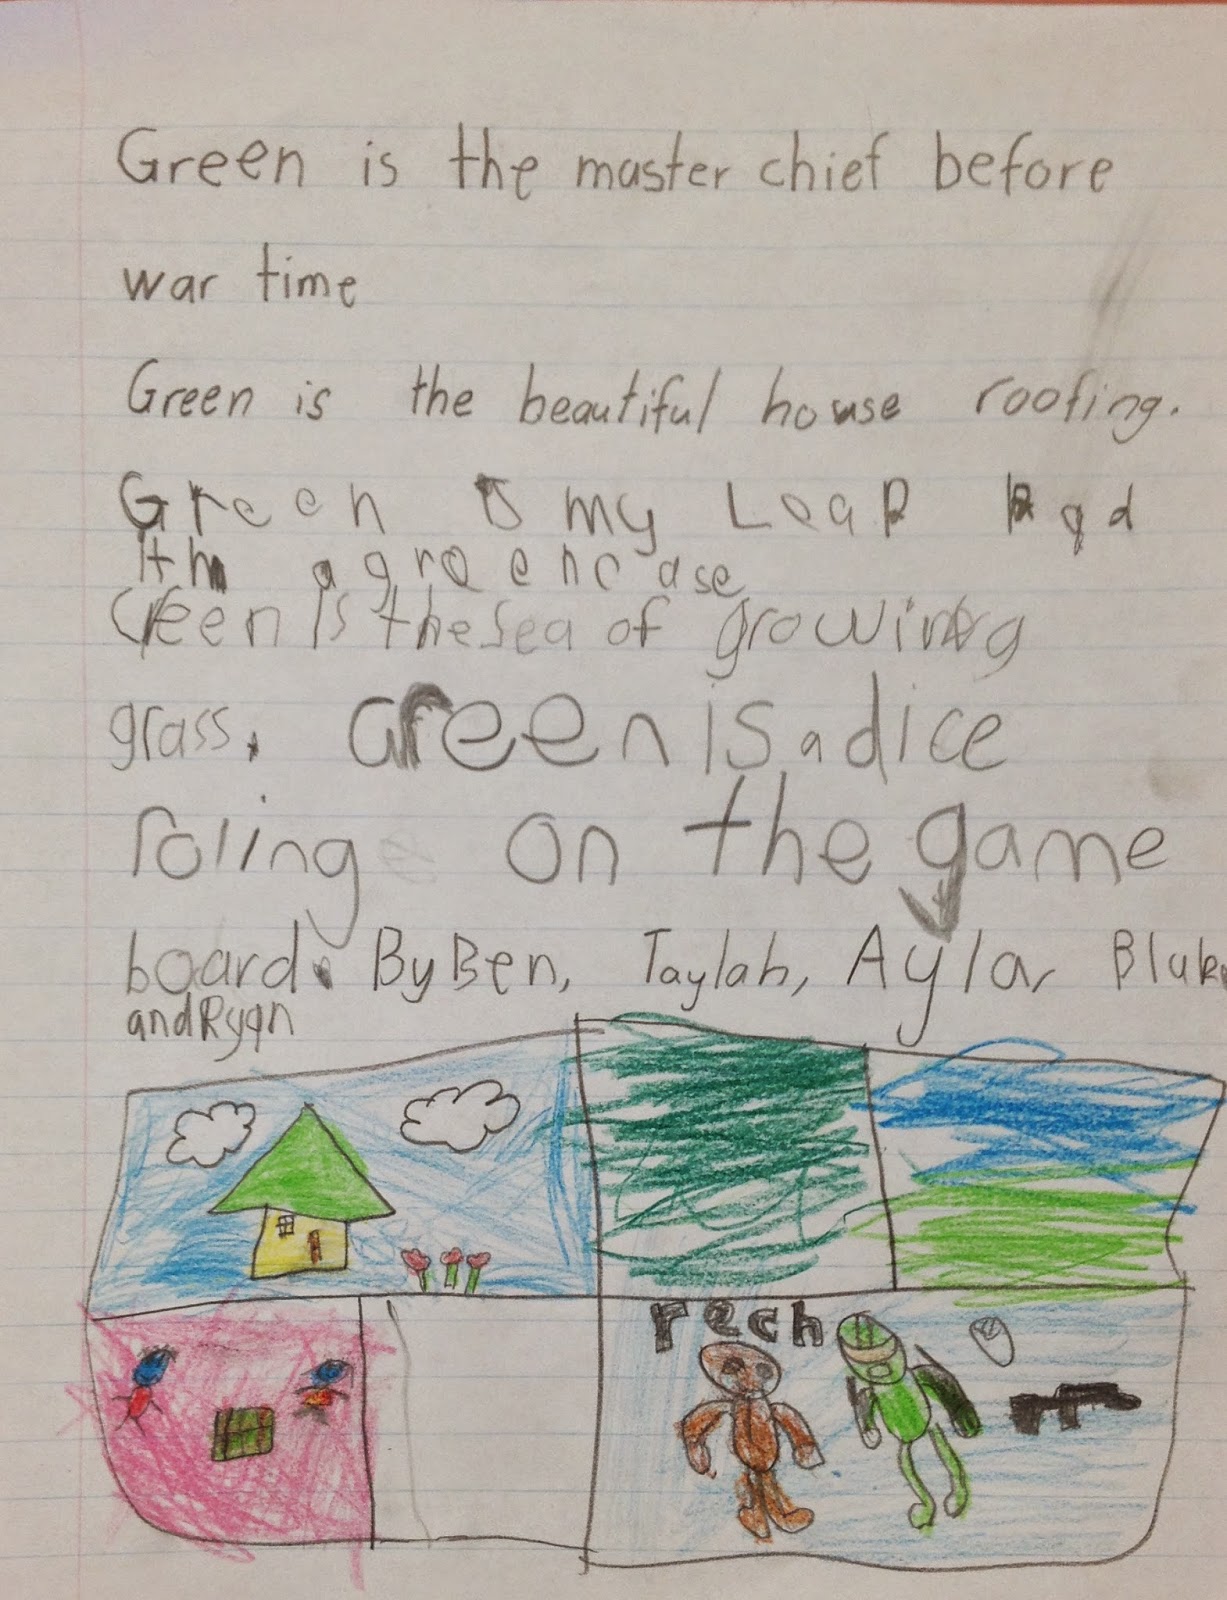 Green is the master chief before
war time
Green is the beautiful house roofing.
Green is my Leap Pad
ith a greencase
Green is the sea of growing
grass. Green is a dice
roling on the game
board. By Ben, Taylah, Ayla, Blake
and Ryan
rech